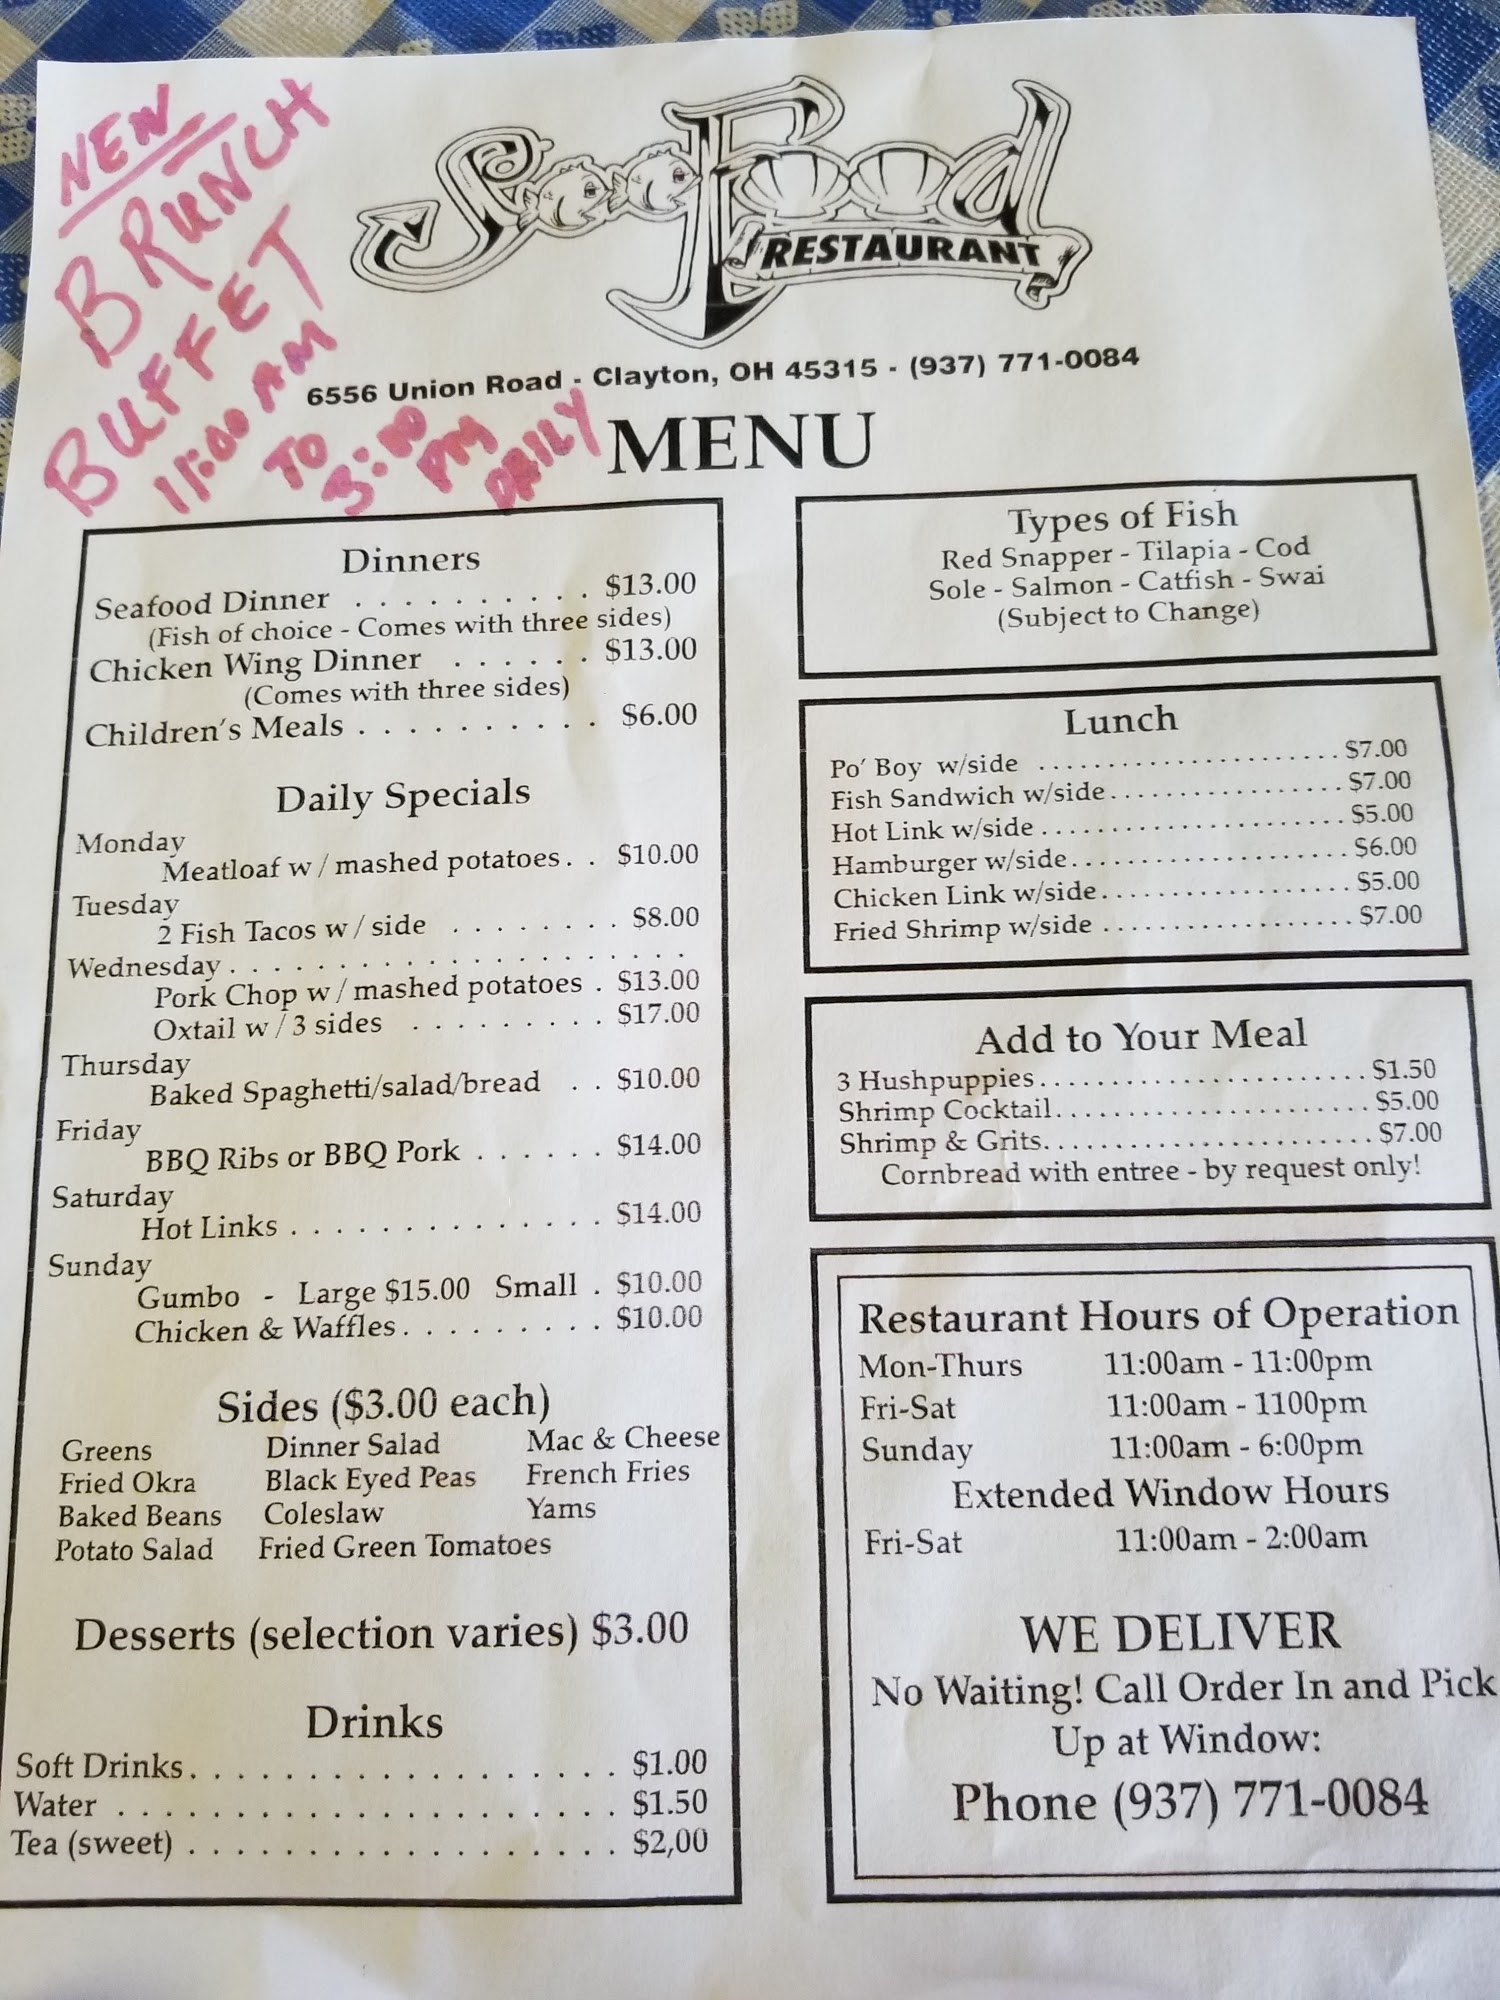 NEW
BRUNCH
BUFFET
11:00 AM
TO
3:00
PM
DAILY
SeaFood
RESTAURANT
6556 Union Road - Clayton, OH 45315 - (937) 771-0084
MENU
Dinners
Seafood Dinner . . . . . . . . . . $13.00
(Fish of choice - Comes with three sides)
Chicken Wing Dinner . . . . . . $13.00
(Comes with three sides)
Children's Meals . . . . . . . . . . $6.00
Daily Specials
Monday
Meatloaf w / mashed potatoes. . $10.00
Tuesday
2 Fish Tacos w / side . . . . . . . . $8.00
Wednesday . . . . . . . . . . . . . . . . . . . .
Pork Chop w / mashed potatoes . $13.00
Oxtail w / 3 sides . . . . . . . . . $17.00
Thursday
Baked Spaghetti/salad/bread . . $10.00
Friday
BBQ Ribs or BBQ Pork . . . . . . $14.00
Saturday
Hot Links . . . . . . . . . . . . . . $14.00
Sunday
Gumbo - Large $15.00 Small . $10.00
Chicken & Waffles . . . . . . . . . $10.00
Sides ($3.00 each)
Greens Dinner Salad Mac & Cheese
Fried Okra Black Eyed Peas French Fries
Baked Beans Coleslaw Yams
Potato Salad Fried Green Tomatoes
Desserts (selection varies) $3.00
Drinks
Soft Drinks . . . . . . . . . . . . . . . . . . $1.00
Water . . . . . . . . . . . . . . . . . . . . . $1.50
Tea (sweet) . . . . . . . . . . . . . . . . . . $2,00
Types of Fish
Red Snapper - Tilapia - Cod
Sole - Salmon - Catfish - Swai
(Subject to Change)
Lunch
Po' Boy w/side ........................ $7.00
Fish Sandwich w/side .................. $7.00
Hot Link w/side ....................... $5.00
Hamburger w/side ..................... $6.00
Chicken Link w/side ................... $5.00
Fried Shrimp w/side ................... $7.00
Add to Your Meal
3 Hushpuppies ......................... $1.50
Shrimp Cocktail ........................ $5.00
Shrimp & Grits ......................... $7.00
Cornbread with entree - by request only!
Restaurant Hours of Operation
Mon-Thurs 11:00am - 11:00pm
Fri-Sat 11:00am - 1100pm
Sunday 11:00am - 6:00pm
Extended Window Hours
Fri-Sat 11:00am - 2:00am
WE DELIVER
No Waiting! Call Order In and Pick
Up at Window:
Phone (937) 771-0084